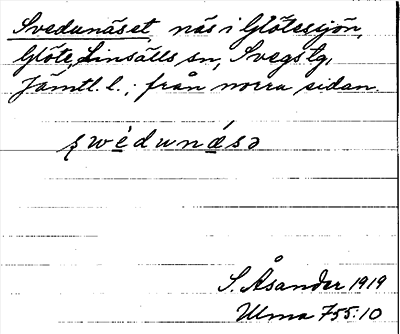 Svedunäset, näs i Glötesjön,
Glöte, Linsälls sn, Svegs tg,
Jämtl. l.; från norra sidan.
ʂwèdunásə
S. Åsander 1919
Ulma 755:10